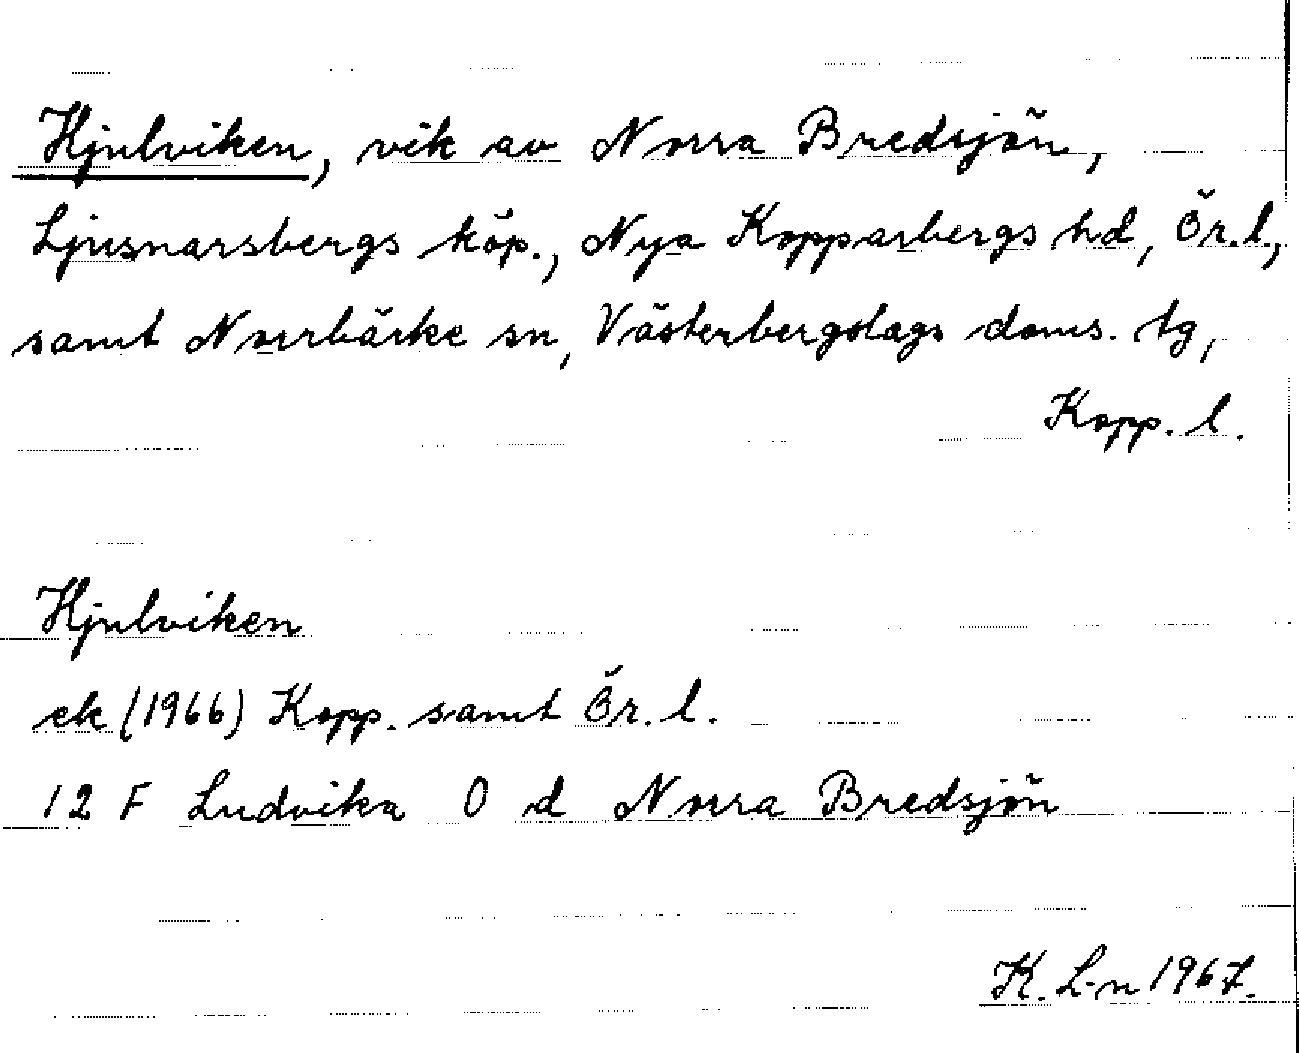 Hjulviken, vik av Norra Bredsjön,
Ljusnarsbergs köp., Nya Kopparbergs hd, Ör. l.,
samt Norrbärke sn, Västerbergslags doms. tg,
Kopp. l.
Hjulviken
ek (1966) Kopp. samt Ör. l.
12 F Ludvika 0 d Norra Bredsjön
K. L-n 1967.